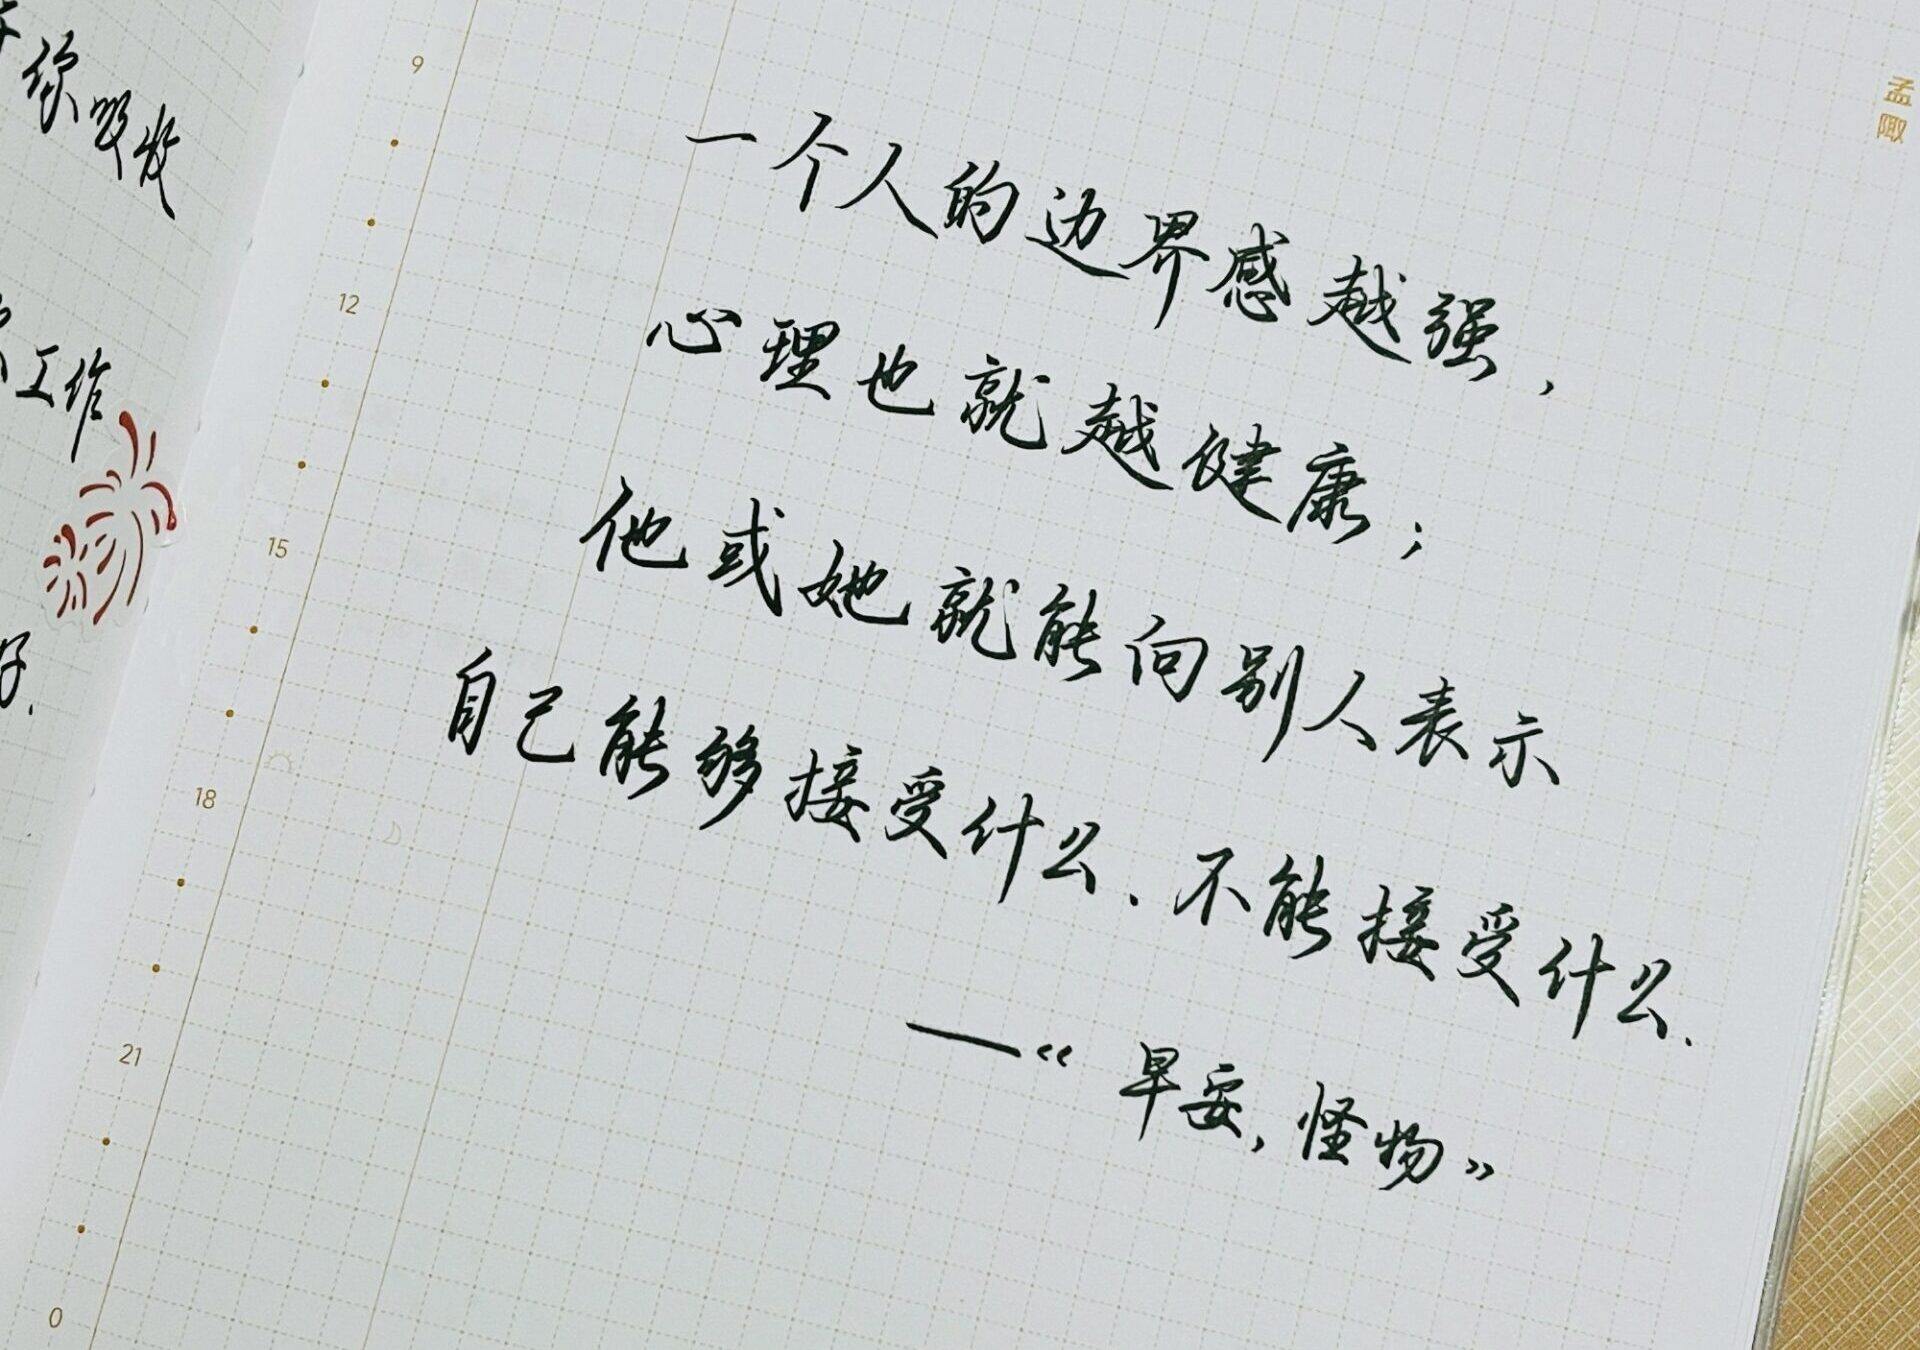 一个人的边界感越强，
心理也就越健康；
他或她就能向别人表示
自己能够接受什么、不能接受什么.
——《早安，怪物》
孟陬
9
12
15
18
21
0
你
工作
好.